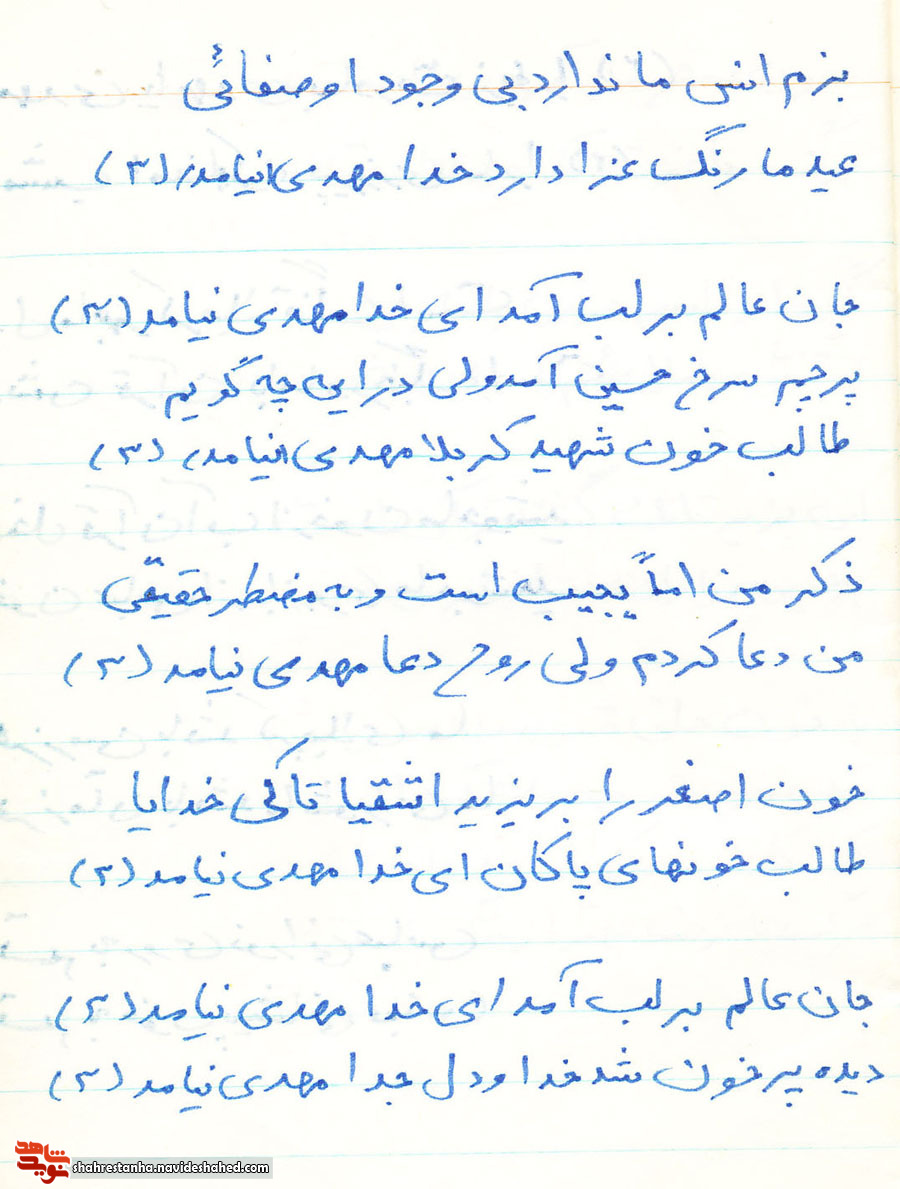 بزم انس ما ندارد بی وجود او صفائی
عید ما رنگ عزا دارد خدا مهدی نیامد (۳)
جان عالم بر لب آمد ای خدا مهدی نیامد (۳)
پرچم سرخ حسین آمد ولی در این چه گویم
طالب خون شهید کربلا مهدی نیامد (۳)
ذکر من اماً یجیب است و به مضطر حقیقی
من دعا کردم ولی روح دعا مهدی نیامد (۳)
خون اصغر را بریزید اشقیا تا کی خدایا
طالب خونهای پاکان ای خدا مهدی نیامد (۲)
جان عالم بر لب آمد ای خدا مهدی نیامد (۲)
دیده پر خون شد خدا و دل جدا مهدی نیامد (۳)
نوید شاهد
shahrestanha.navideshahed.com